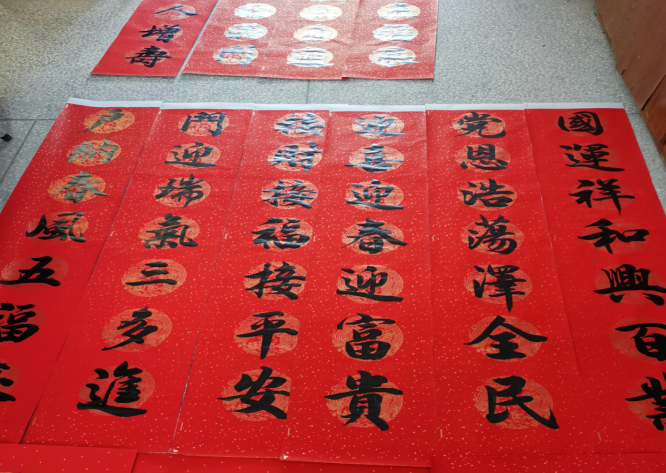 人增壽
國運祥和興百業
党恩浩蕩澤全民
迎喜迎春迎富貴
接財接福接平安
門迎瑞氣三多進
戶納春風五福